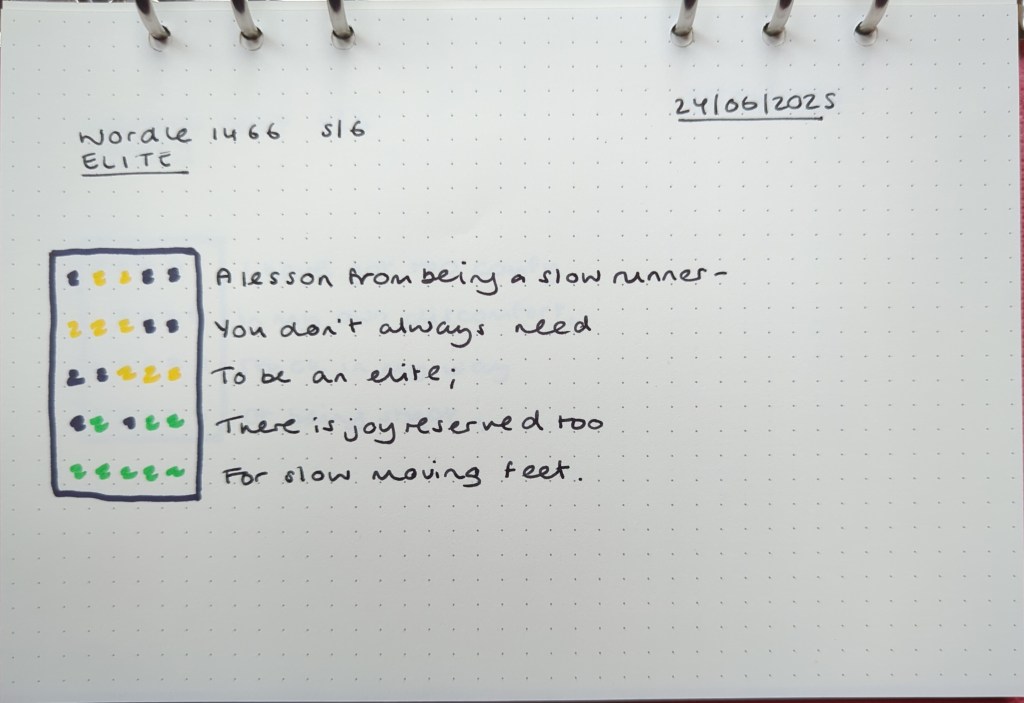 24/06/2025
Wordle 1466 5/6
ELITE
A lesson from being a slow runner -
You don't always need
To be an elite;
There is joy reserved too
For slow moving feet.